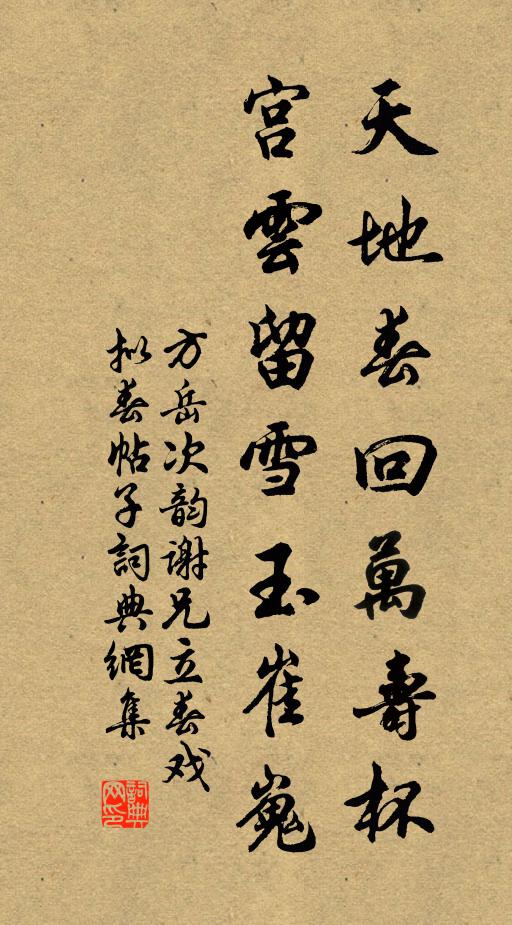 天地春回萬壽杯
宫雲留雪玉崔嵬
方岳次韵謝兄立春戏
拟春帖子詞典網集
詞典网印